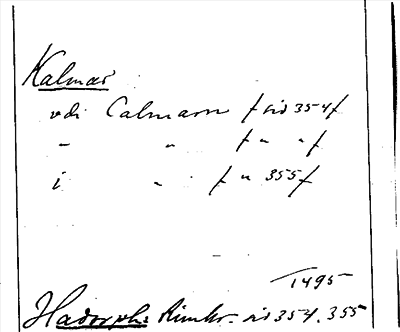 Kalmar
vdi Calmarn / sid 354 /
- " / " " /
i " / " 355 /
1495
Hadorphs Rimkr. sid 354. 355